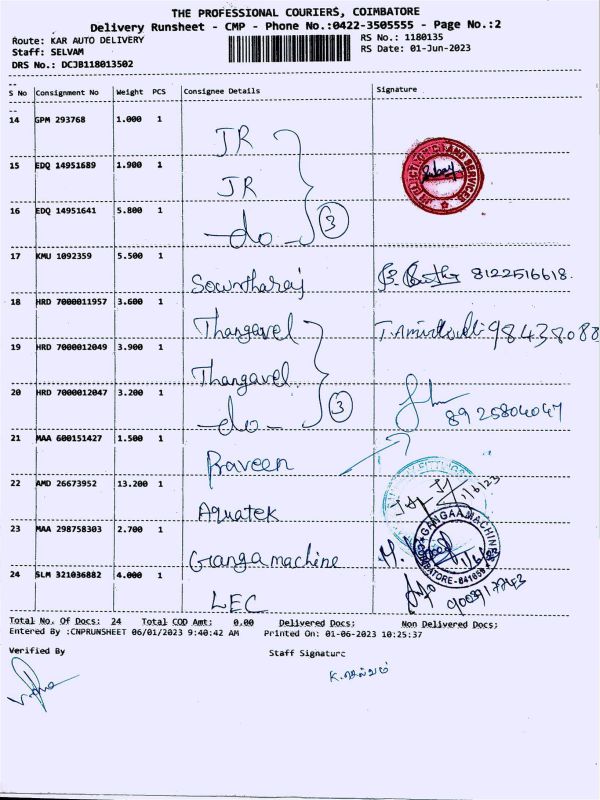 THE PROFESSIONAL COURIERS, COIMBATORE
Delivery Runsheet - CMP - Phone No.:0422-3505555 - Page No.:2
Route: KAR AUTO DELIVERY RS No.: 1180135
Staff: SELVAM RS Date: 01-Jun-2023
DRS No.: DCJB118013502
S No Consignment No Weight PCS Consignee Details Signature
14 GPM 293768 1.000 1 JR
15 EDQ 14951689 1.900 1 JR
16 EDQ 14951641 5.800 1 -do- 3
17 KMU 1092359 5.500 1 Sowntharaj 8122516618.
18 HRD 7000011957 3.600 1 Thangavel 98438088
19 HRD 7000012049 3.900 1 Thangavel
20 HRD 7000012047 3.200 1 -do- 3 8925804047
21 MAA 600151427 1.500 1 Praveen
22 AMD 26673952 13.200 1 Aquatek 1/6/23
23 MAA 298758303 2.700 1 Ganga machine
24 SLM 321036882 4.000 1 LEC
Total No. Of Docs: 24 Total COD Amt: 0.00 Delivered Docs: Non Delivered Docs:
Entered By :CNPRUNSHEET 06/01/2023 9:40:42 AM Printed On: 01-06-2023 10:25:37
Verified By Staff Signature